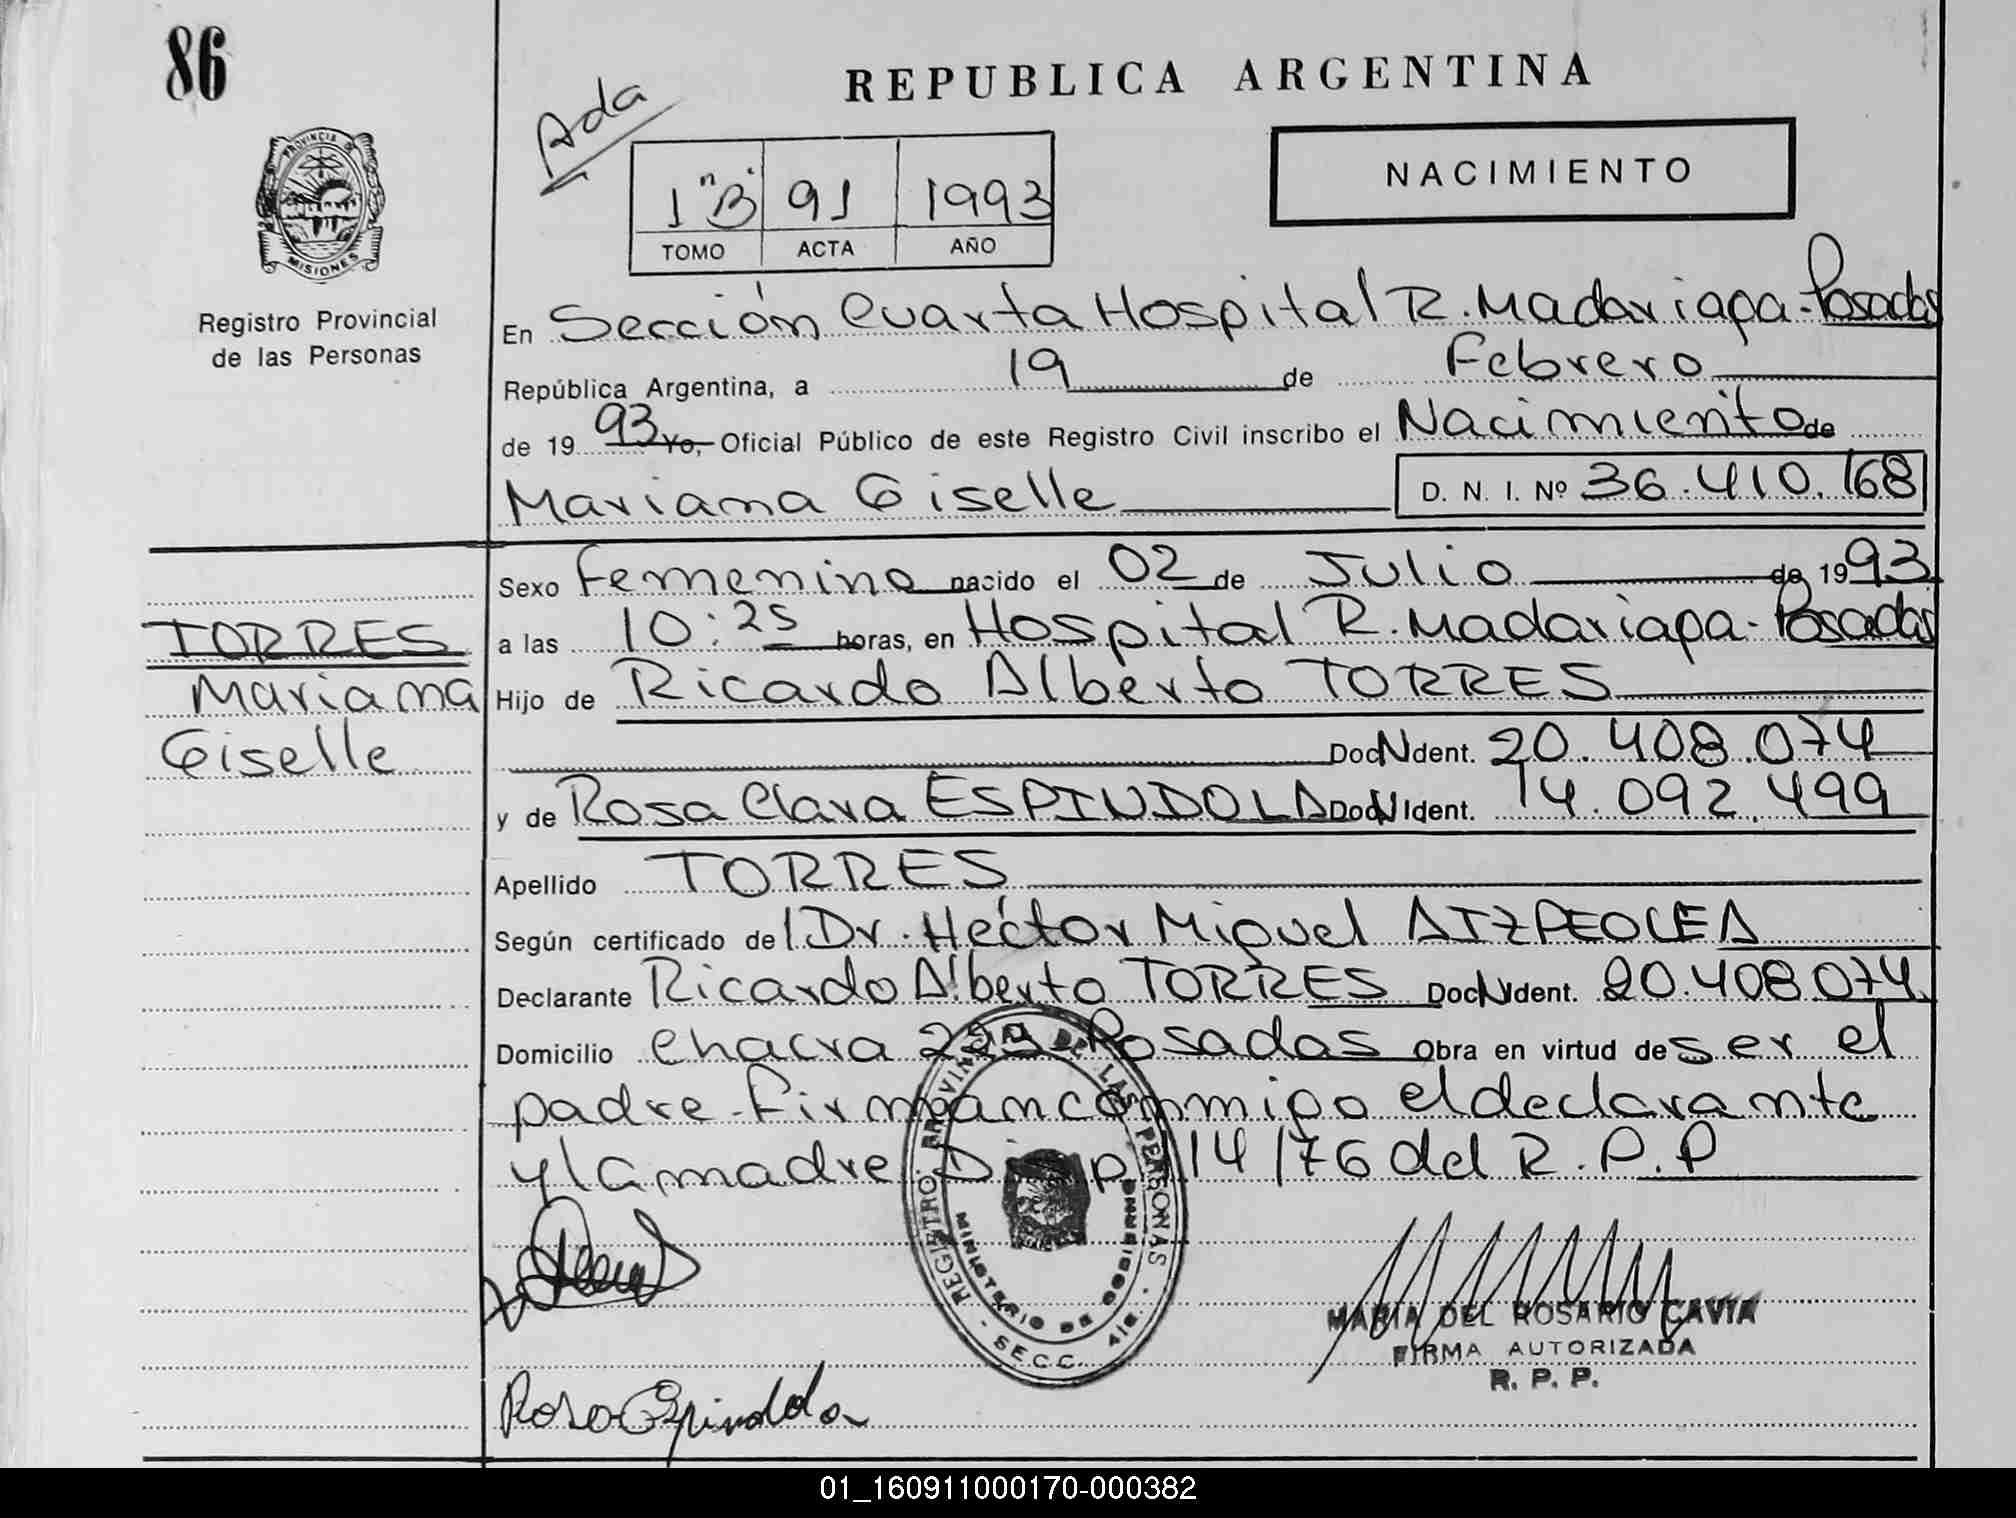 86
Ada
REPUBLICA ARGENTINA
NACIMIENTO
1"B" 91 1993
TOMO ACTA AÑO
PROVINCIA DE
MISIONES
Registro Provincial
de las Personas
En Sección Cuarta Hospital R. Madariaga - Posadas
República Argentina, a 19 de Febrero
de 1993 Yo, Oficial Público de este Registro Civil inscribo el Nacimiento de
Mariana Giselle D. N. I. Nº 36.410.168
Sexo Femenino nacido el 02 de Julio de 1993
a las 10:25 horas, en Hospital R. Madariaga - Posadas
TORRES
Mariana
Giselle
Hijo de Ricardo Alberto TORRES
Doc N Ident. 20.408.074
y de Rosa Clara ESPINDOLA Doc N Ident. 14.092.499
Apellido TORRES
Según certificado del Dr. Héctor Miguel AIZPEOLEA
Declarante Ricardo Alberto TORRES Doc N Ident. 20.408.074
Domicilio Chacra Posadas Obra en virtud de ser el
padre - Firman conmigo el declarante
y la madre Disp. 114/76 del R.P.P
REGISTRO PROVINCIAL DE LAS PERSONAS
MINISTERIO DE GOBIERNO
- SECC. 4ta. -
MARIA DEL ROSARIO CAVIA
FIRMA AUTORIZADA
R. P. P.
Rosa Espindola
01_160911000170-000382